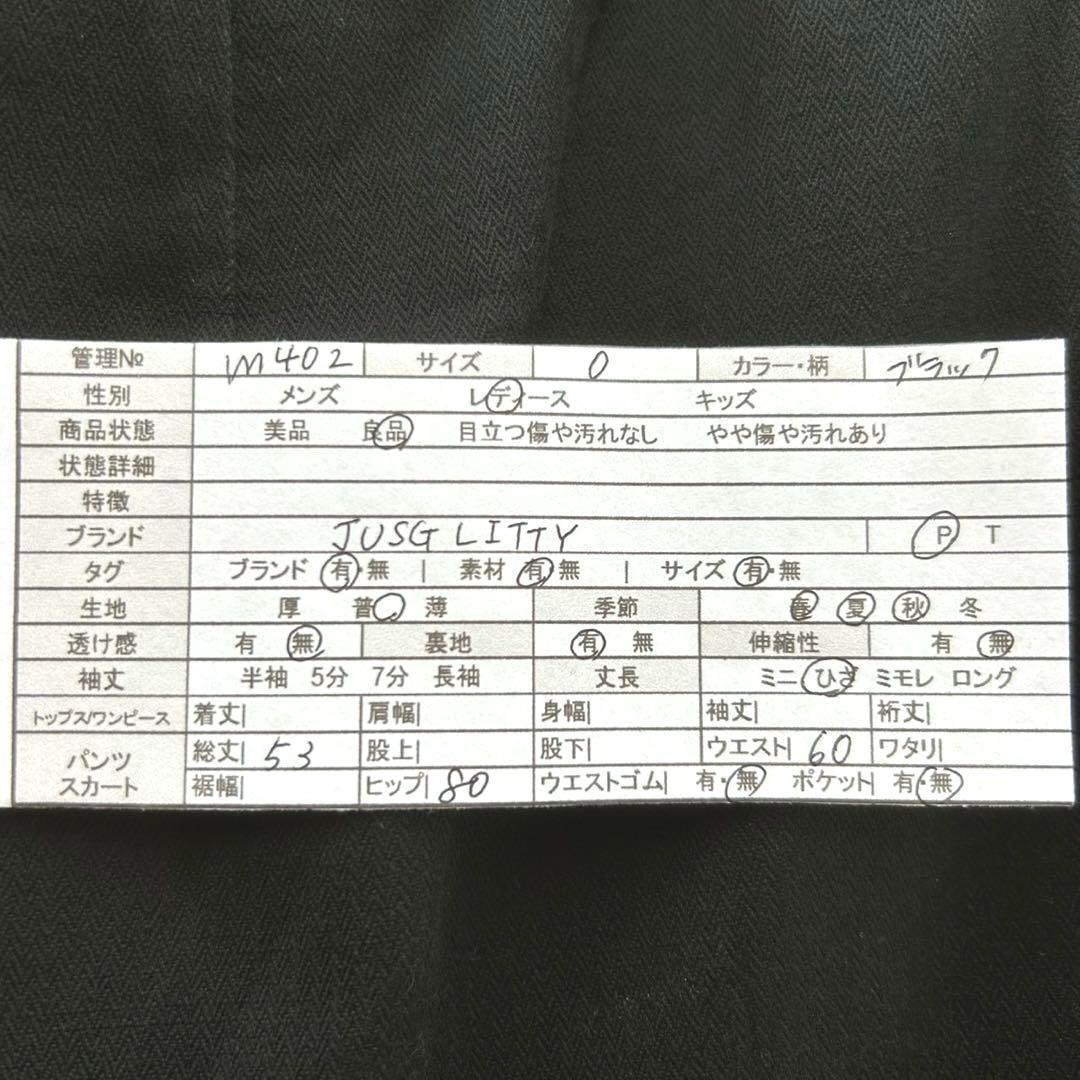 管理№ m402 サイズ 0 カラー・柄 ブラック
性別 メンズ レディース キッズ
商品状態 美品 良品 目立つ傷や汚れなし やや傷や汚れあり
状態詳細
特徴
ブランド JUSG LITTY P T
タグ ブランド 有・無 | 素材 有・無 | サイズ 有・無
生地 厚 普 薄 季節 春 夏 秋 冬
透け感 有 無 裏地 有 無 伸縮性 有 無
袖丈 半袖 5分 7分 長袖 丈長 ミニ ひざ ミモレ ロング
トップス/ワンピース 着丈| 肩幅| 身幅| 袖丈| 裄丈|
パンツ スカート 総丈| 53 股上| 股下| ウエスト| 60 ワタリ|
裾幅| ヒップ| 80 ウエストゴム| 有・無 ポケット| 有・無